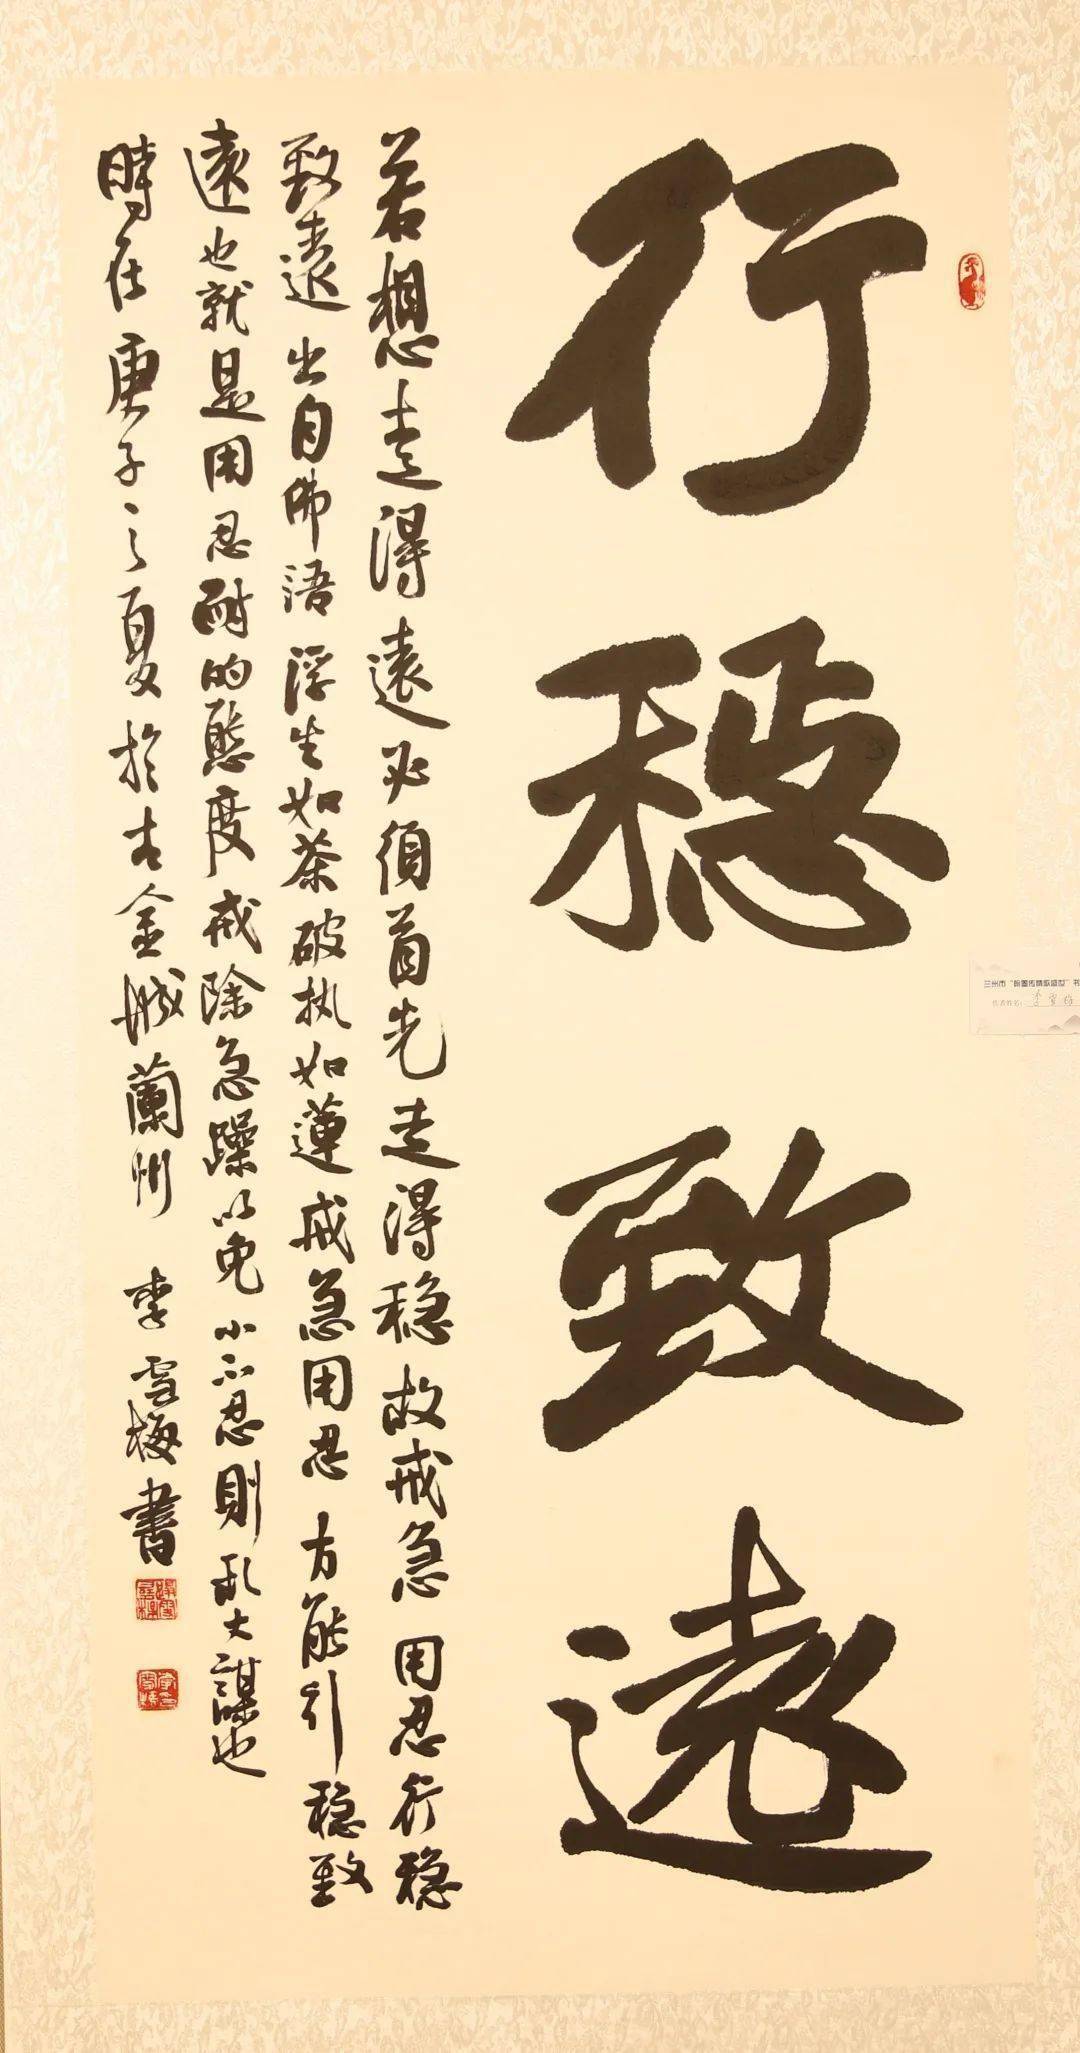 行稳致遠
若想走得遠必須首先走得稳故戒急用忍行稳
致遠出自佛語浮生如茶破执如蓮戒急用忍方能行稳致
遠也就是用忍耐的態度戒除急躁以免小不忍則乱大謀也
時在庚子之夏於古金城蘭州 李雪梅書
兰州市“翰墨传情歌盛世”书
作者姓名：李雪梅